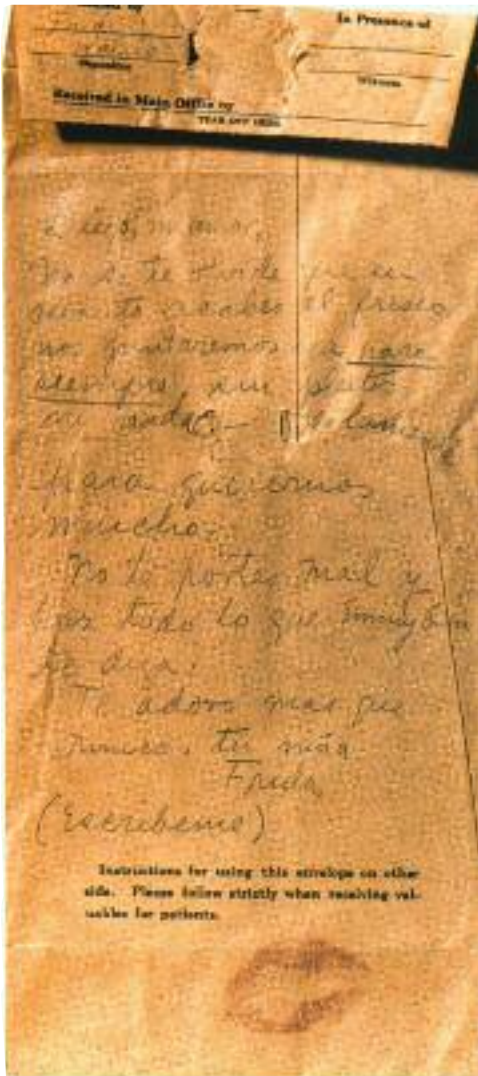 In Presence of
Witness
Received in Main Office by
TEAR OFF HERE
Diego, mi amor,
No se te olvide que en
cuanto acabes el fresco
nos juntaremos ya para
siempre, sin pleitos
ni nada. – Solamente
para querernos
mucho.
No te portes mal y
haz todo lo que Emmy Lou
te diga.
Te adoro mas que
nunca. tu niña
Frida
(escribeme)
Instructions for using this envelope on other
side. Please follow strictly when receiving val-
uables for patients.